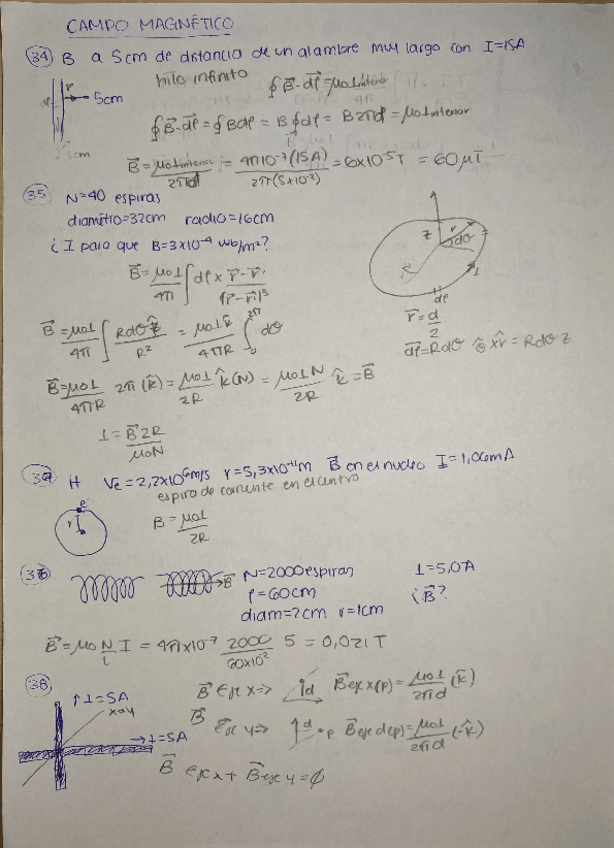 CAMPO MAGNÉTICO
34) B a 5cm de distancia de un alambre muy largo con I=15A
hilo infinito ∮B⃗·dl⃗=μ₀I interior
r 5cm
∮B⃗·dl⃗=∮Bdl = B∮dl = B2πd=μ₀I interior
B⃗=μ₀I interior/2πd = 4π10⁻⁷(15A)/2π(5x10⁻²) = 6x10⁻⁵T = 60μT
35) N=40 espiras
diámetro=32cm radio=16cm
¿I para que B=3x10⁻⁴ wb/m²?
z r dθ
I
dl
B⃗=μ₀I/4π ∫dl x r⃗-r⃗'/|r⃗-r⃗'|³
r⃗=d/2
B⃗=μ₀I/4π ∫Rdθ k̂/R² = μ₀I k̂/4πR ∫₀^2π dθ
dl⃗=Rdθ θ̂ x r̂ = Rdθ z
B⃗=μ₀I/4πR 2π(k̂)=μ₀I/2R k̂(N)=μ₀IN/2R k̂=B⃗
I=B⃗2R/μ₀N
37) H Ve=2,2x10⁶m/s r=5,3x10⁻¹¹m B⃗ en el nucleo I=1,06mA
espira de corriente en el centro
e⁻
r
B=μ₀I/2R
36) B⃗ N=2000 espiras I=5,0A
l=60cm ¿B⃗?
diam=2cm r=1cm
B⃗=μ₀ N/L I = 4πx10⁻⁷ 2000/60x10² 5 = 0,021T
38) ↑I=5A
x=y
→I=5A
B⃗ eje x=> d B⃗eje x(p)=μ₀I/2πd (k̂)
B⃗ eje y=> d •p B⃗eje y(p)=μ₀I/2πd (-k̂)
B⃗ eje x+B⃗eje y=∅